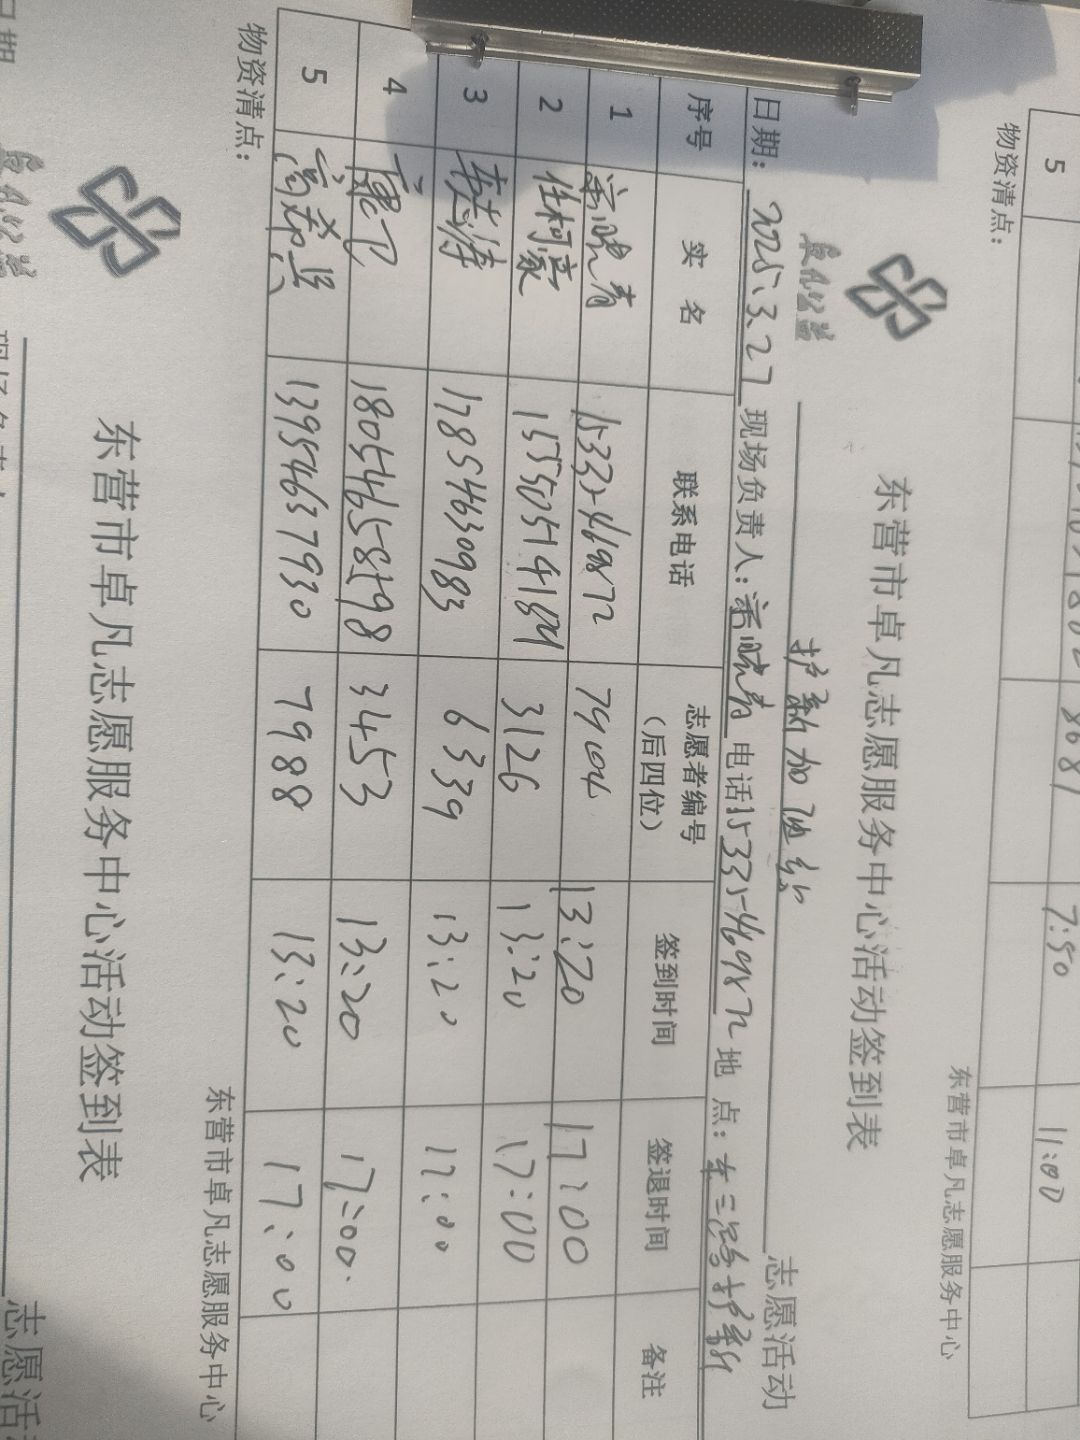 5
8687
7:50
11:00
物资清点：
东营市卓凡志愿服务中心
卓凡公益
东营市卓凡志愿服务中心活动签到表
志愿活动
日期：2025.3.27 现场负责人： 电话15335469872 地 点：
序号 实 名 联系电话 志愿者编号（后四位） 签到时间 签退时间 备注
1 15335469872 7904 13:20 17:00
2 任柯豪 15550541484 3126 13:20 17:00
3 17854630983 6339 13:20 17:00
4 18054658598 3453 13:20 17:00.
5 13954637930 7988 13:20 17:00
物资清点：
东营市卓凡志愿服务中心
卓凡公益
东营市卓凡志愿服务中心活动签到表
志愿活
日期